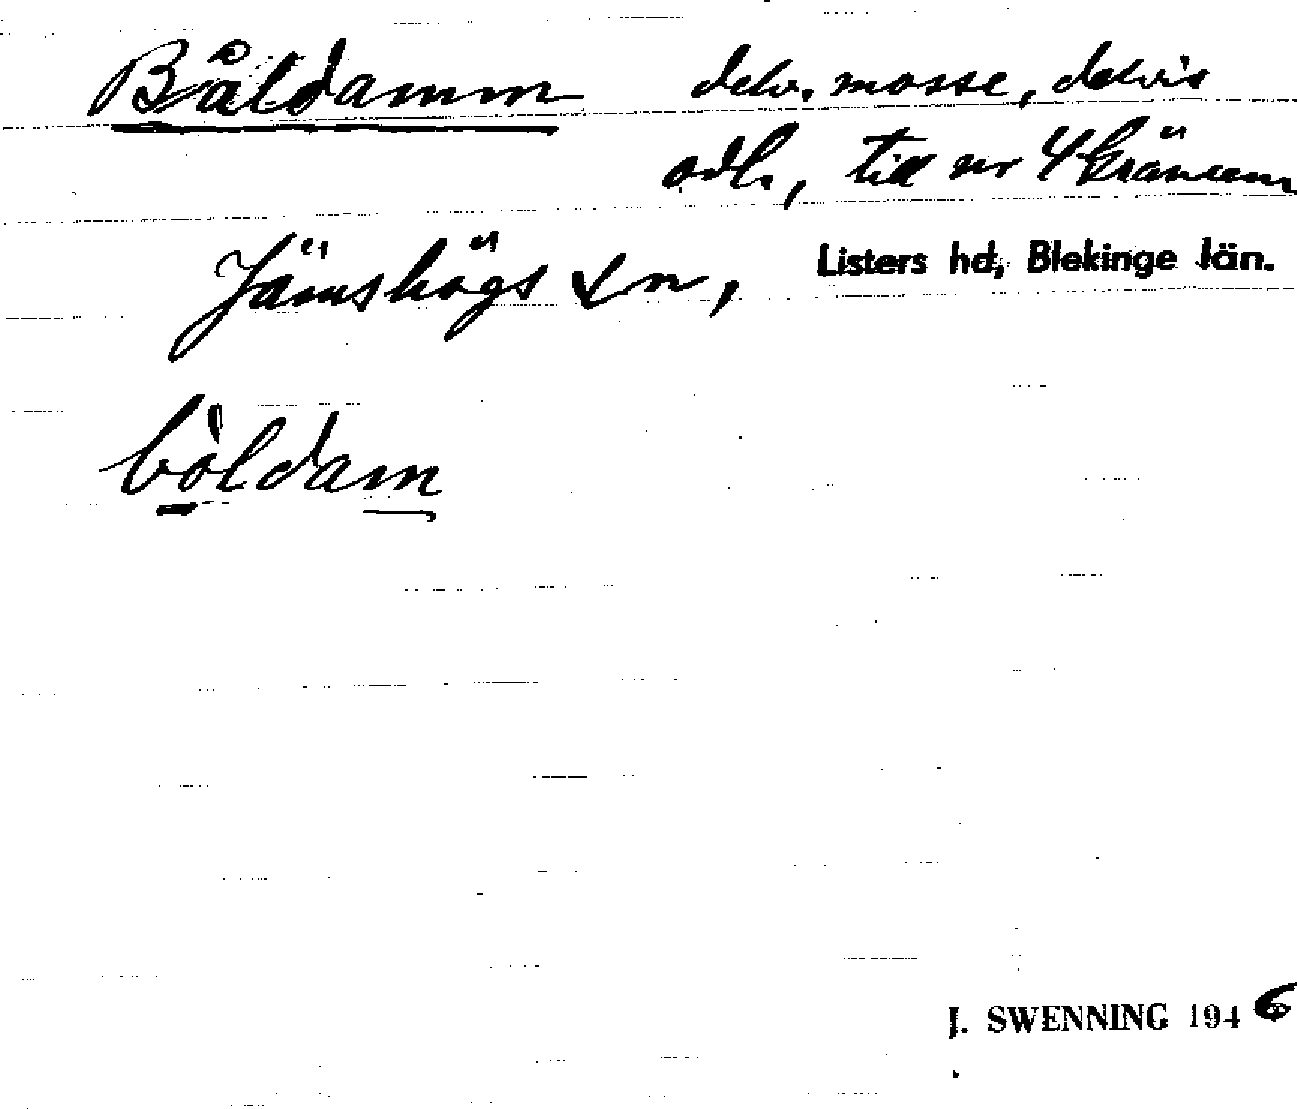 Båldamm delv. mosse, delvis
odl., till nr 4 Gränum
Jämshögs sn, Listers hd, Blekinge län.
bòldam
J. SWENNING 1946